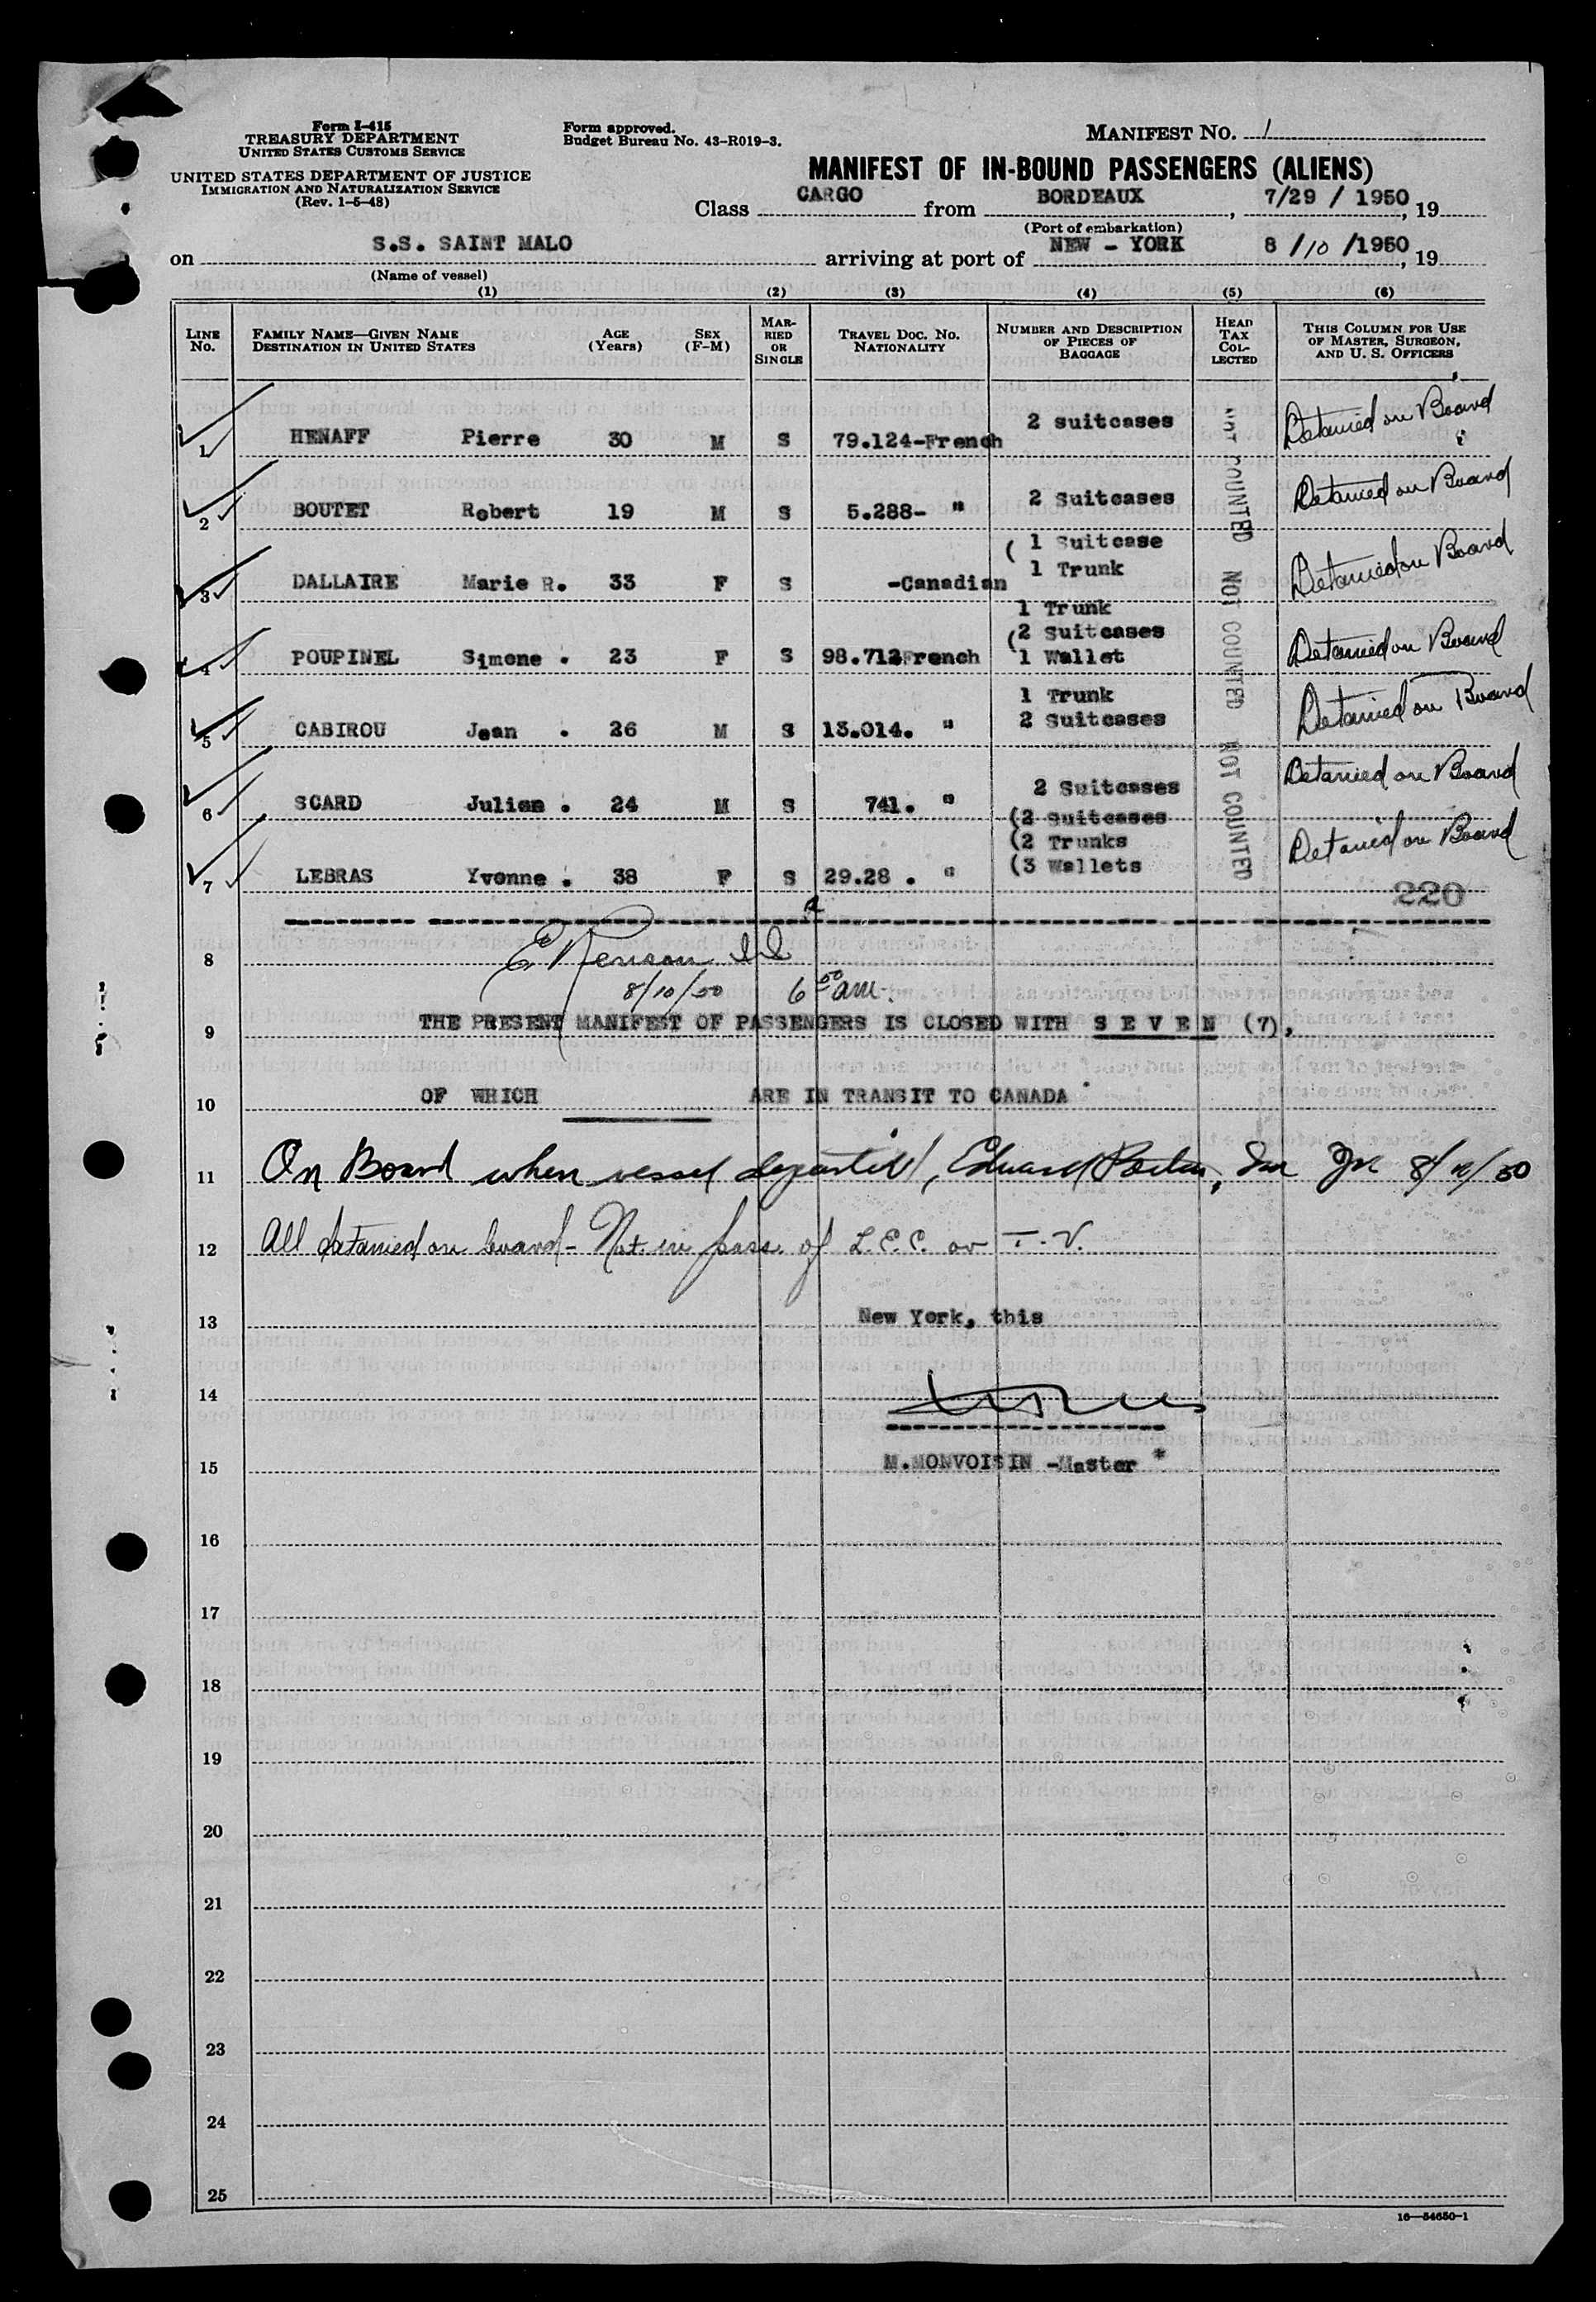 Form I-415
TREASURY DEPARTMENT
UNITED STATES CUSTOMS SERVICE
UNITED STATES DEPARTMENT OF JUSTICE
IMMIGRATION AND NATURALIZATION SERVICE
(Rev. 1-5-48)
Form approved.
Budget Bureau No. 43-R019-3.
MANIFEST No. 1
MANIFEST OF IN-BOUND PASSENGERS (ALIENS)
Class CARGO from BORDEAUX, 7/29 / 1950, 19
(Port of embarkation)
on S.S. SAINT MALO arriving at port of NEW - YORK 8 /10 /1950, 19
(Name of vessel)
(1) (2) (3) (4) (5) (6)
LINE No. FAMILY NAME—GIVEN NAME DESTINATION IN UNITED STATES AGE (Years) SEX (F-M) MARRIED OR SINGLE TRAVEL DOC. NO. NATIONALITY NUMBER AND DESCRIPTION OF PIECES OF BAGGAGE HEAD TAX COLLECTED THIS COLUMN FOR USE OF MASTER, SURGEON, AND U. S. OFFICERS
1 HENAFF Pierre 30 M S 79.124-French 2 suitcases Detained on Board
2 BOUTET Robert 19 M S 5.288- " 2 Suitcases Detained on Board
( 1 Suitcase
3 DALLAIRE Marie R. 33 F S -Canadian 1 Trunk Detained on Board
1 Trunk
(2 Suitcases
4 POUPINEL Simone . 23 F S 98.712French 1 Wallet Detained on Board
1 Trunk
5 CABIROU Jean . 26 M S 13.014. " 2 Suitcases Detained on Board
6 SCARD Julien . 24 M S 741. " 2 Suitcases Detained on Board
(2 Suitcases
(2 Trunks
7 LEBRAS Yvonne . 38 F S 29.28 . " (3 Wallets Detained on Board
NOT COUNTED NOT COUNTED NOT COUNTED
220
8
8/10/50 6 50 am.
9 THE PRESENT MANIFEST OF PASSENGERS IS CLOSED WITH S E V E N (7),
10 OF WHICH ARE IN TRANSIT TO CANADA
11 On Board when vessel departed, Edward 8/10/50
12 All detained on board - Not in poss. of L.E.C. or T.V.
13 New York, this
14
15 M.MONVOISIN -Master *
16
17
18
19
20
21
22
23
24
25
16—54650-1